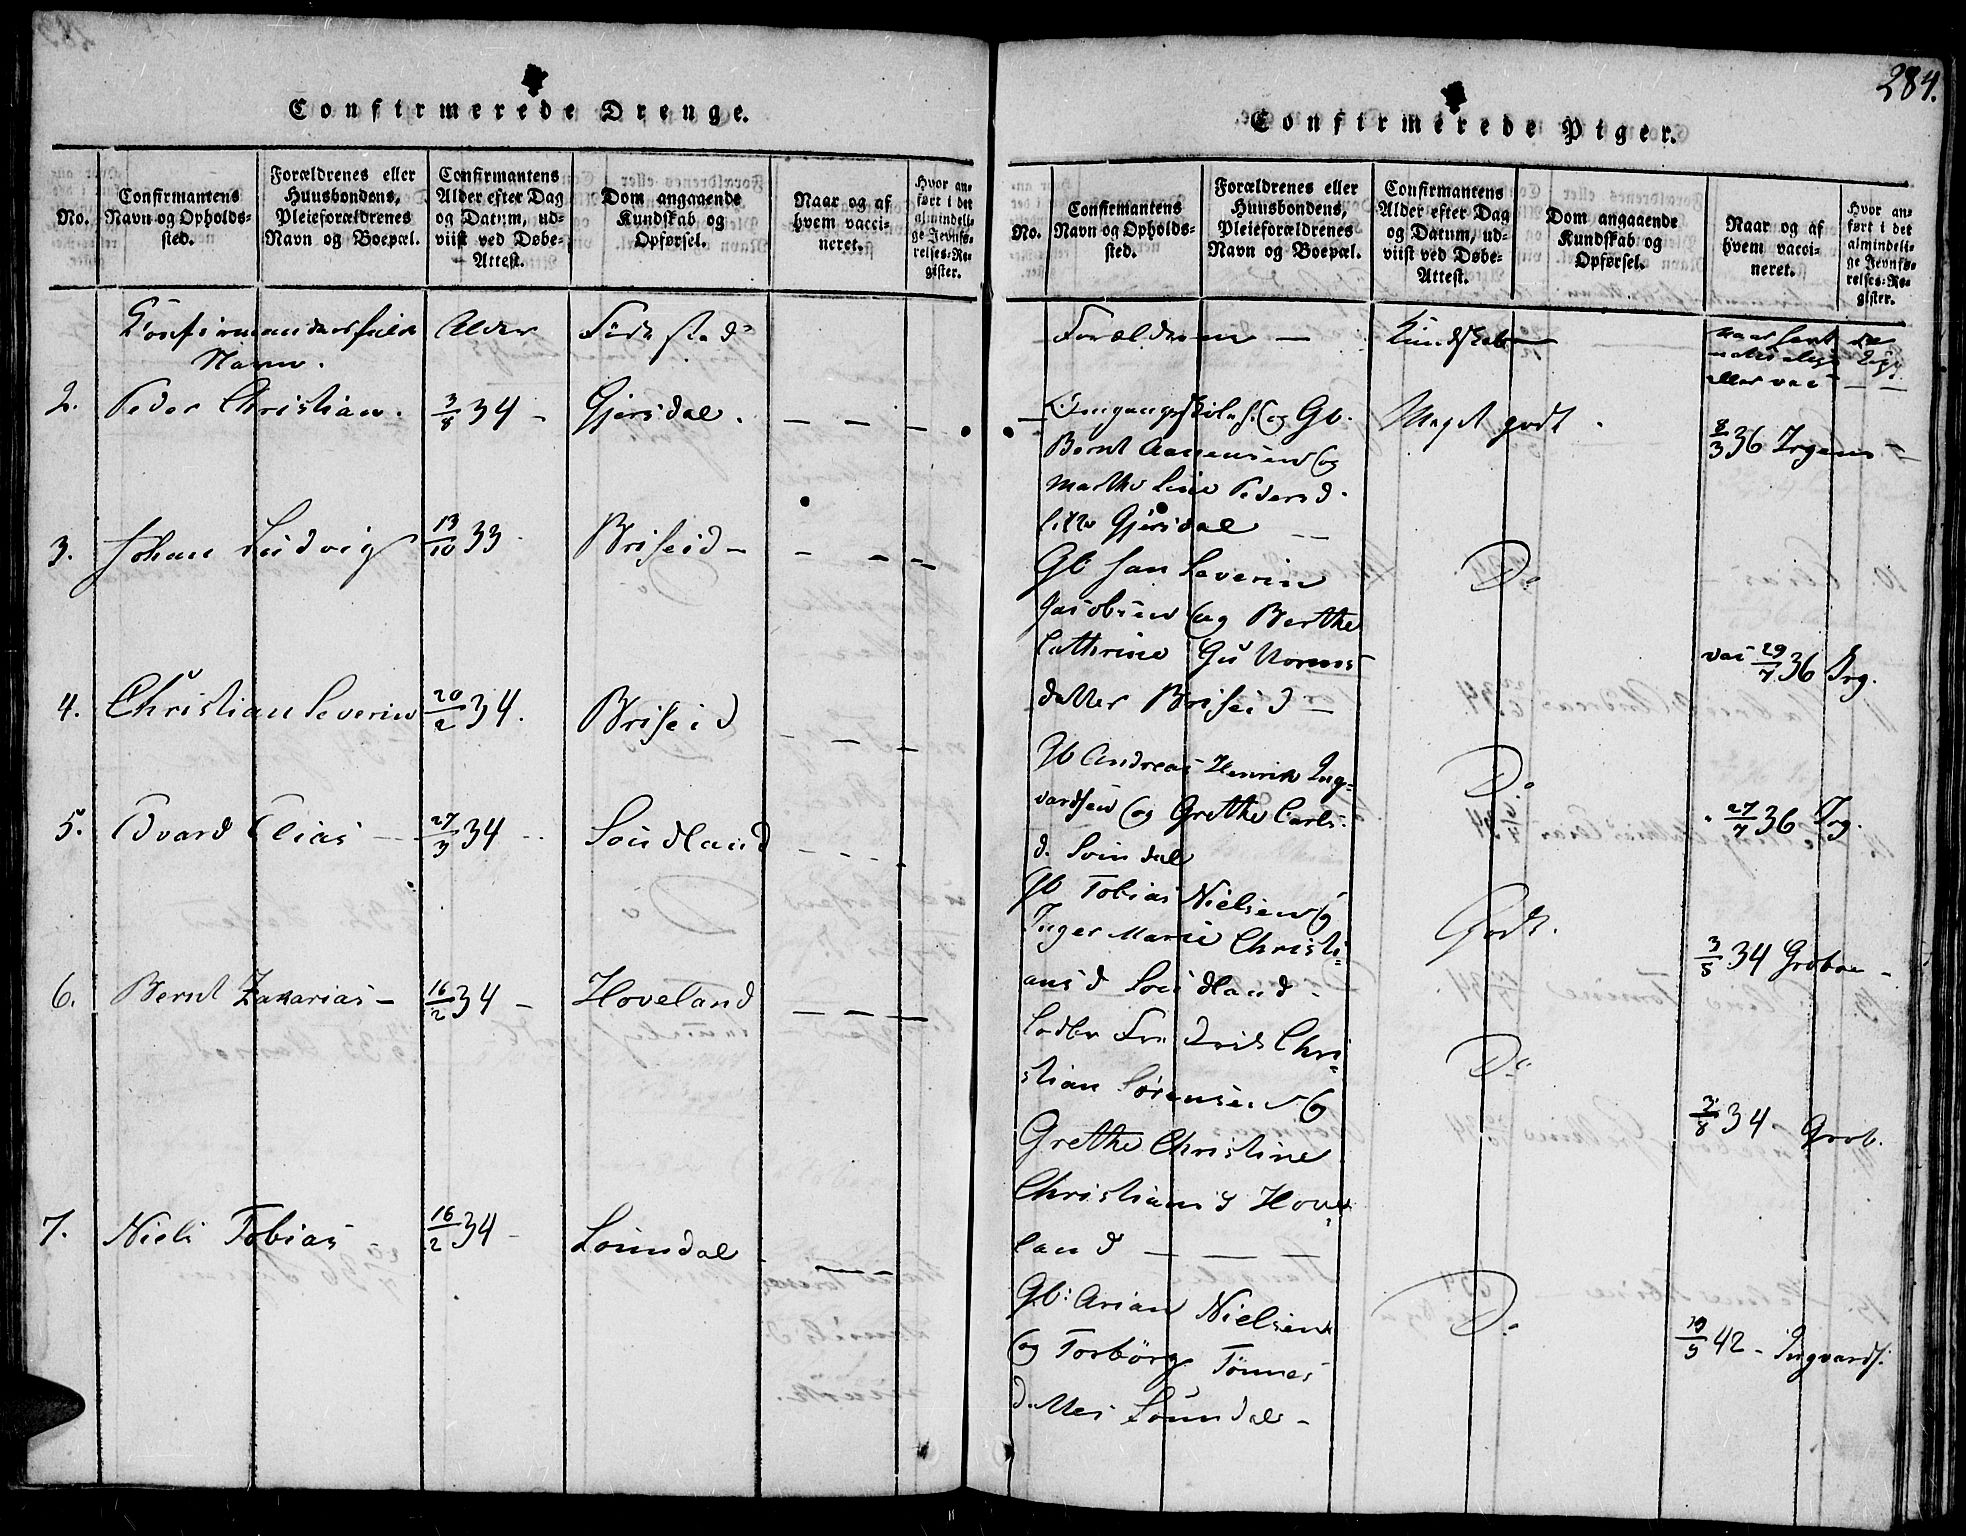 284.
Confirmerede Drenge.
No.
Confirmantens
Navn og Opholds-
sted.
Forældrenes eller
Huusbondens,
Pleieforældrenes
Navn og Boepæl.
Confirmantens
Alder efter Dag
og Datum, ud-
viist ved Døbe-
Attest.
Dom angaaende
Kundskab og
Opførsel.
Naar og af
hvem vacci-
neret.
Hvor an-
ført i det
almindeli-
ge Jevnfø-
relses-Re-
gister.
Navn.
Alder
Fødested
2. Peder Christian. 3/8 34 - Gjersdal. - - -
3. Johan Ludvig 13/10 33 - Briseid - - - -
4. Christian Severin 20/2 34. Briseid - - -
5. Edvard Elias - 27/3 34 - Soudland - - -
6. Bernt Zakarias - 16/2 34 - Hoveland - - -
7. Niels Tobias 16/2 34 - Louendal - - -
Confirmerede Piger.
No.
Confirmantens
Navn og Opholds-
sted.
Forældrenes eller
Huusbondens,
Pleieforældrenes
Navn og Boepæl.
Confirmantens
Alder efter Dag
og Datum, ud-
viist ved Døbe-
Attest.
Dom angaaende
Kundskab og
Opførsel.
Naar og af
hvem vacci-
neret.
Hvor an-
ført i det
almindeli-
ge Jevnfø-
relses-Re-
gister.
Forældrene - Kundskab
eller vac - -
og Gb.
Bernt Aanensen og
Marthe Sine Peders d.
Gjersdal
Meget godt.
8/3 36 Irgens -
Gb Jan Severin
Jacobsen og Berthe
Cathrine Guttorms
datter Briseid -
Do
vac 29/7 36 Irg.
Gb Andreas Henrik Ing-
vardsen og Grethe Carls.
d.
Do
27/7 36 Irg.
Gb Tobias Nielsen og
Inger Marie Christi-
ans d Soudland -
Godt.
3/8 34 Groboe -
Fredrik Chri-
stian Sørensen og
Grethe Christine
Christians d Hove-
land - - -
Do
3/8 34. Grob.
Gb: Arian Nielsen
og Torborg Tønnes
datter
Do
19/9 42 - Ingvards.